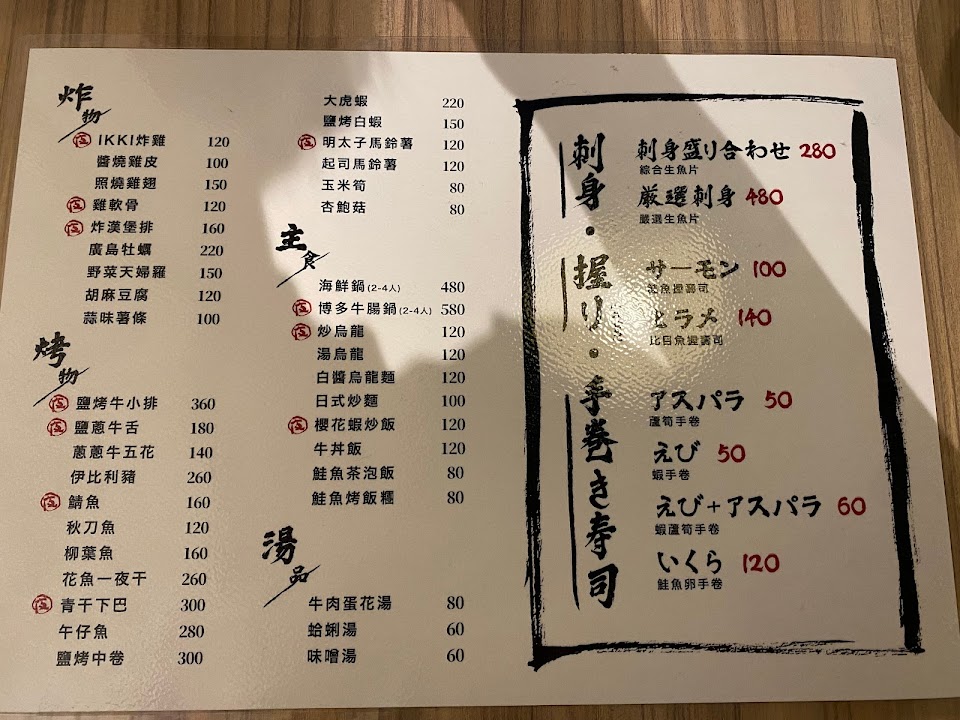 炸物
IKKI炸雞 120
醬燒雞皮 100
照燒雞翅 150
雞軟骨 120
炸漢堡排 160
廣島牡蠣 220
野菜天婦羅 150
胡麻豆腐 120
蒜味薯條 100
烤物
鹽烤牛小排 360
鹽蔥牛舌 180
蔥蔥牛五花 140
伊比利豬 260
鯖魚 160
秋刀魚 120
柳葉魚 160
花魚一夜干 260
青干下巴 300
午仔魚 280
鹽烤中卷 300
大虎蝦 220
鹽烤白蝦 150
明太子馬鈴薯 120
起司馬鈴薯 120
玉米筍 80
杏鮑菇 80
主食
海鮮鍋(2-4人) 480
博多牛腸鍋(2-4人) 580
炒烏龍 120
湯烏龍 120
白醬烏龍麵 120
日式炒麵 100
櫻花蝦炒飯 120
牛丼飯 120
鮭魚茶泡飯 80
鮭魚烤飯糰 80
湯品
牛肉蛋花湯 80
蛤蜊湯 60
味噌湯 60
刺身・握り・手巻き寿司
刺身盛り合わせ 280
綜合生魚片
厳選刺身 480
嚴選生魚片
サーモン 100
鮭魚握壽司
ヒラメ 140
比目魚握壽司
アスパラ 50
蘆筍手卷
えび 50
蝦手卷
えび+アスパラ 60
蝦蘆筍手卷
いくら 120
鮭魚卵手卷